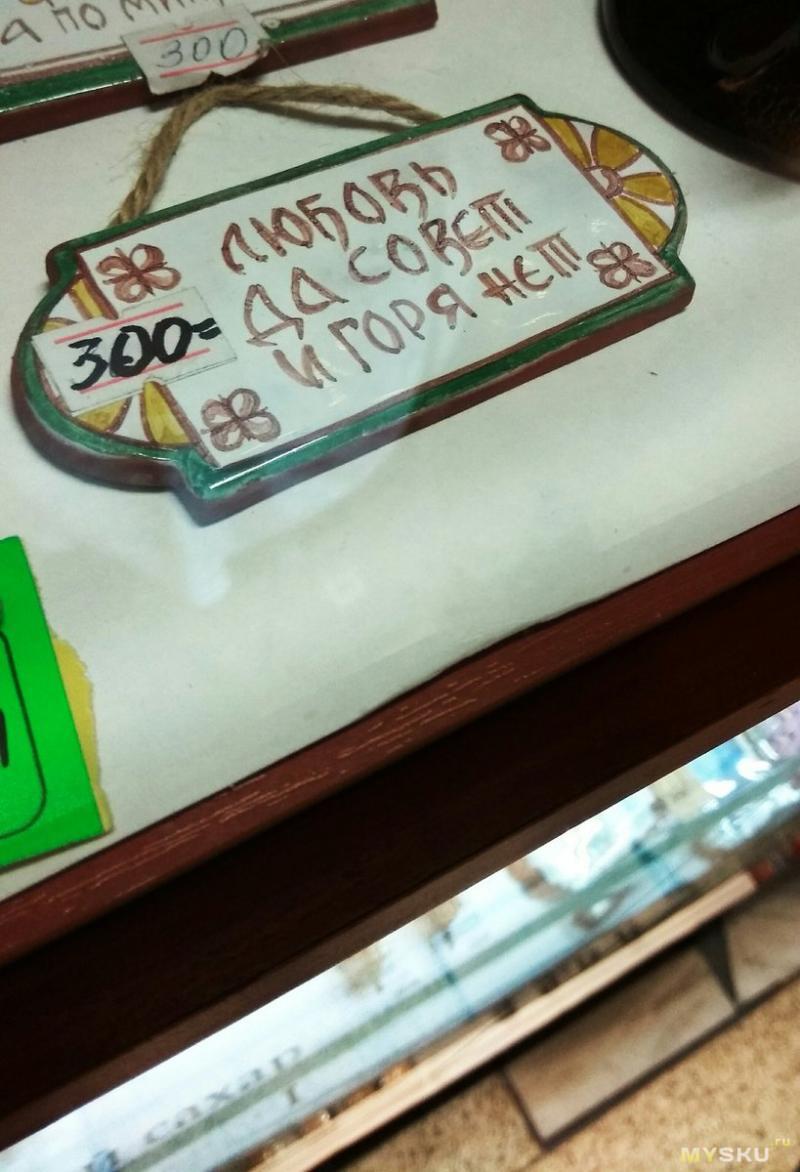 а по ми
300
ЛЮБОВЬ
ДА СОВЕТ
И ГОРЯ НЕТ
300=
сахар
MYSKU.ru